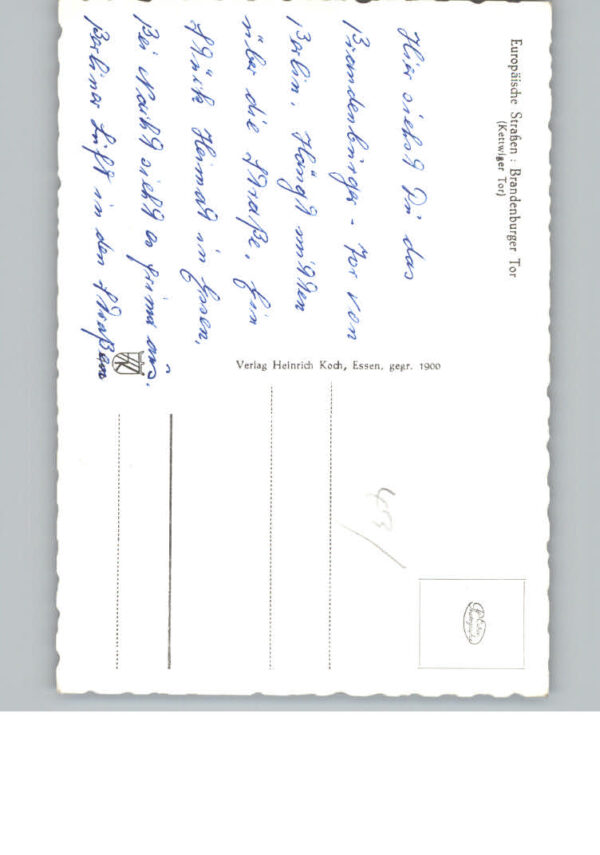 Europäische Straßen : Brandenburger Tor
(Kettwiger Tor)
Hier siehst Du das
Brandenburger - Tor von
Berlin. Hängt mitten
über die Straße. Ein
Stück Heimat in Essen.
Bei Nacht sieht es prima aus.
Berliner Luft in den Straßen
Verlag Heinrich Koch, Essen, gegr. 1900